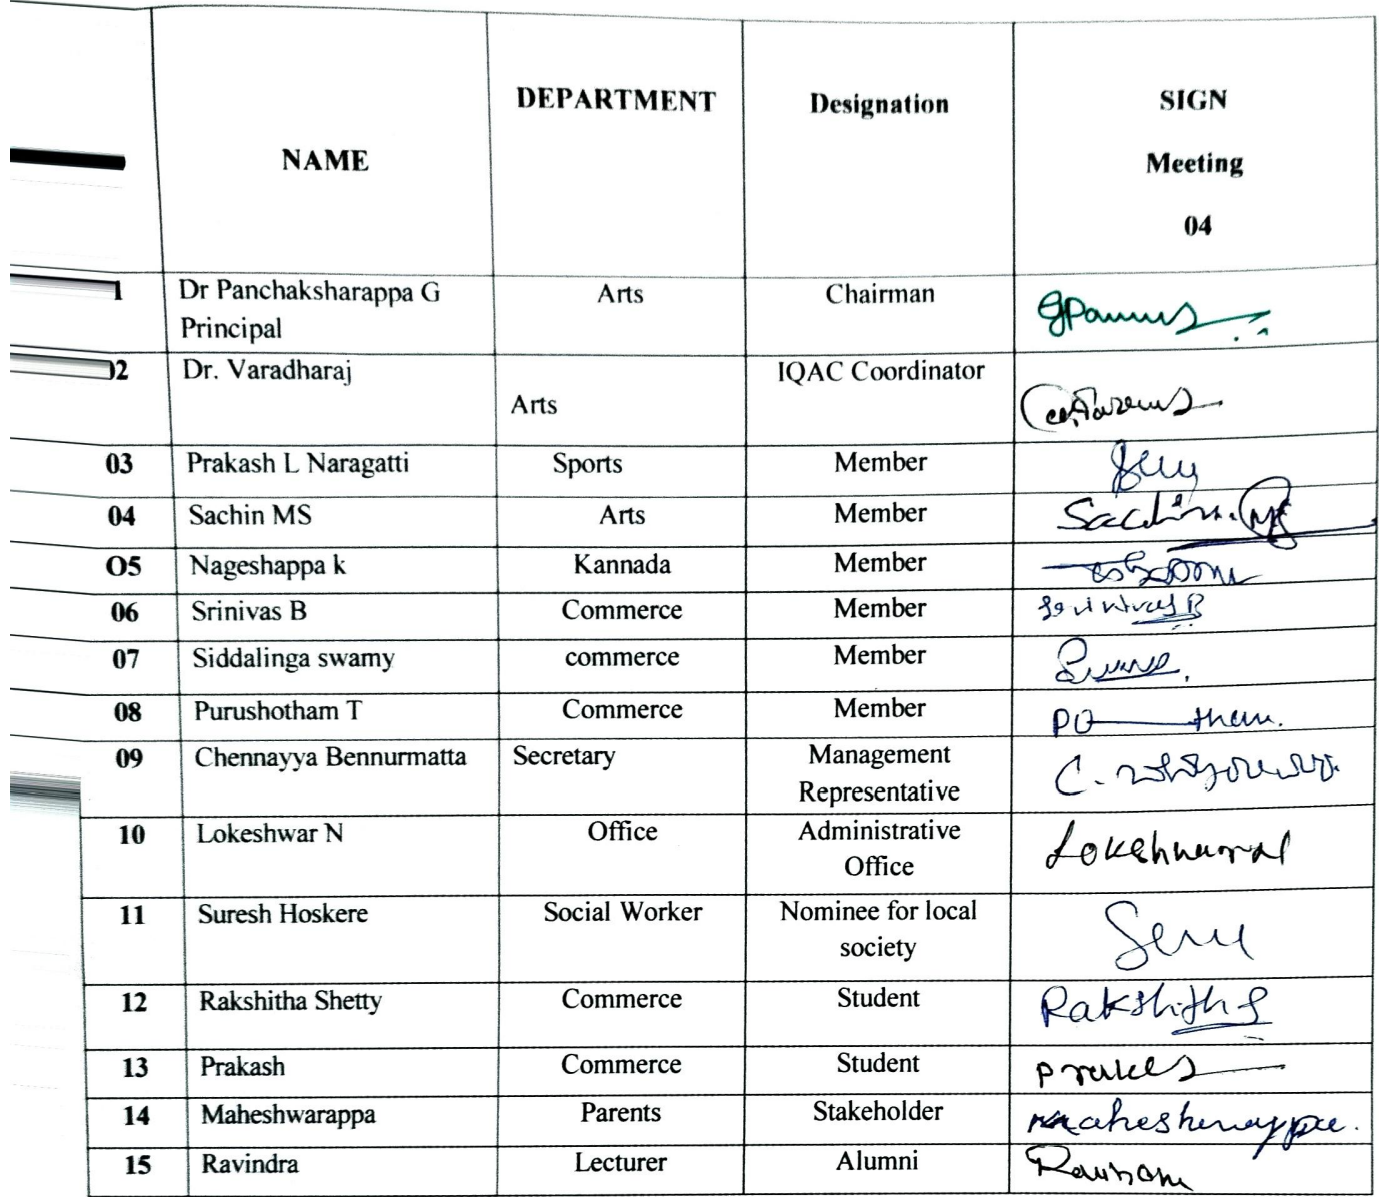 NAME DEPARTMENT Designation SIGN
Meeting
04
1 Dr Panchaksharappa G Arts Chairman
Principal
02 Dr. Varadharaj Arts IQAC Coordinator
03 Prakash L Naragatti Sports Member
04 Sachin MS Arts Member Sachin.MS
O5 Nageshappa k Kannada Member
06 Srinivas B Commerce Member Srinivas B
07 Siddalinga swamy commerce Member
08 Purushotham T Commerce Member
09 Chennayya Bennurmatta Secretary Management
Representative
10 Lokeshwar N Office Administrative
Office
11 Suresh Hoskere Social Worker Nominee for local
society
12 Rakshitha Shetty Commerce Student
13 Prakash Commerce Student
14 Maheshwarappa Parents Stakeholder
15 Ravindra Lecturer Alumni